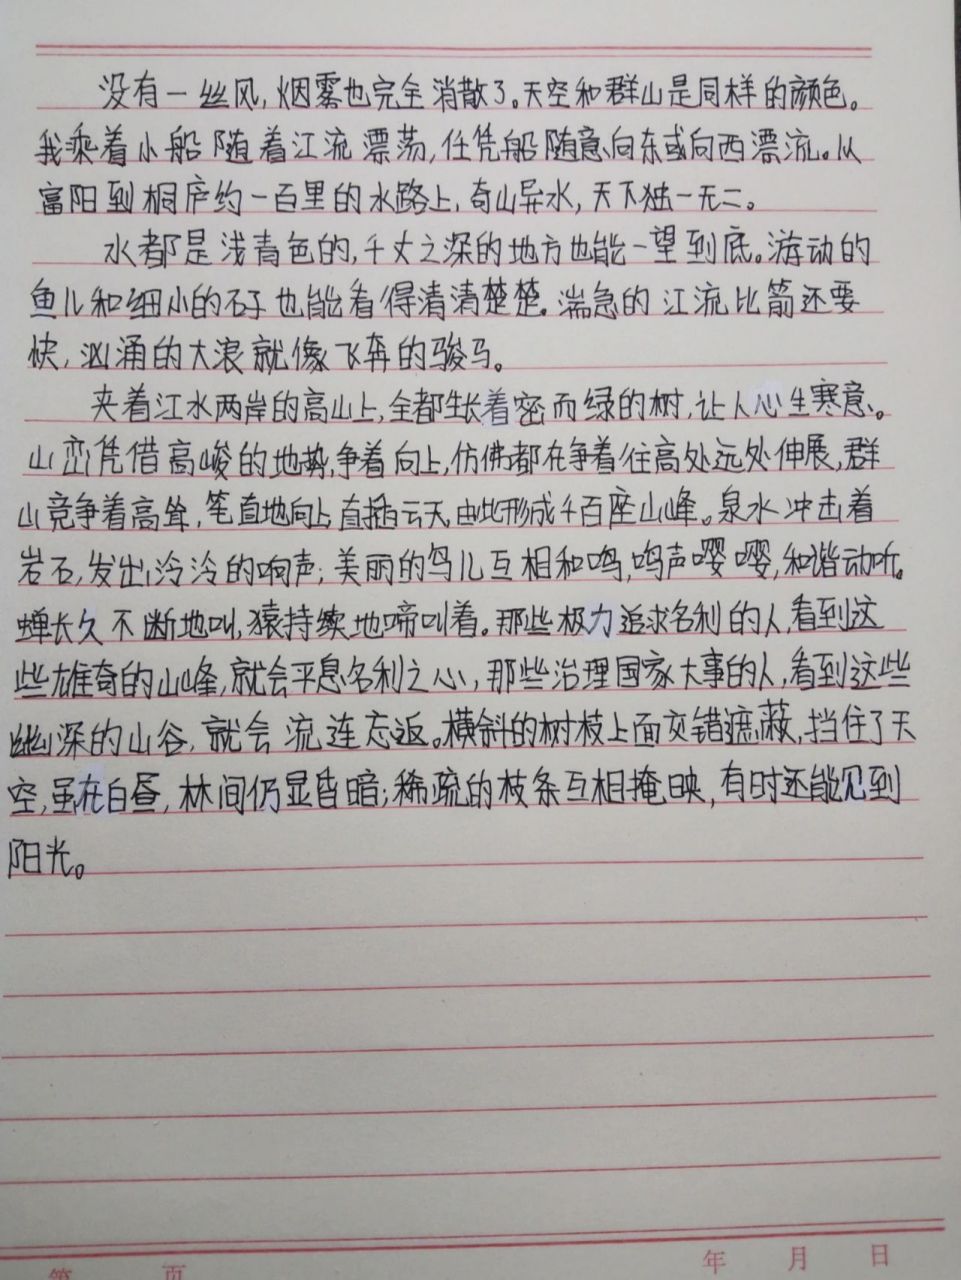 没有一丝风，烟雾也完全消散了。天空和群山是同样的颜色。
我乘着小船随着江流漂荡，任凭船随意向东或向西漂流。从
富阳到桐庐约一百里的水路上，奇山异水，天下独一无二。
水都是浅青色的，千丈之深的地方也能一望到底。游动的
鱼儿和细小的石子也能看得清清楚楚。湍急的江流比箭还要
快，汹涌的大浪就像飞奔的骏马。
夹着江水两岸的高山上，全都生长着密而绿的树，让人心生寒意。
山峦凭借高峻的地势，争着向上，仿佛都在争着往高处远处伸展，群
山竞争着高耸，笔直地向上，直插云天，由此形成千百座山峰。泉水冲击着
岩石，发出泠泠的响声；美丽的鸟儿互相和鸣，鸣声嘤嘤，和谐动听。
蝉长久不断地叫，猿持续地啼叫着。那些极力追求名利的人，看到这
些雄奇的山峰，就会平息名利之心，那些治理国家大事的人，看到这些
幽深的山谷，就会流连忘返。横斜的树枝上面交错遮蔽，挡住了天
空，虽在白昼，林间仍显昏暗；稀疏的枝条互相掩映，有时还能见到
阳光。
第 页 年 月 日